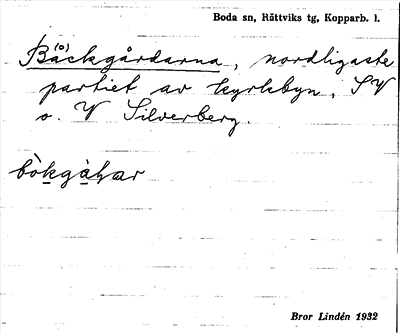 Boda sn, Rättviks tg, Kopparb. l.
Bä(o)ckgårdarna, nordligaste
partiet av kyrkbyn, SV
o. V Silverberg.
bòkgàɥar
Bror Lindén 1932